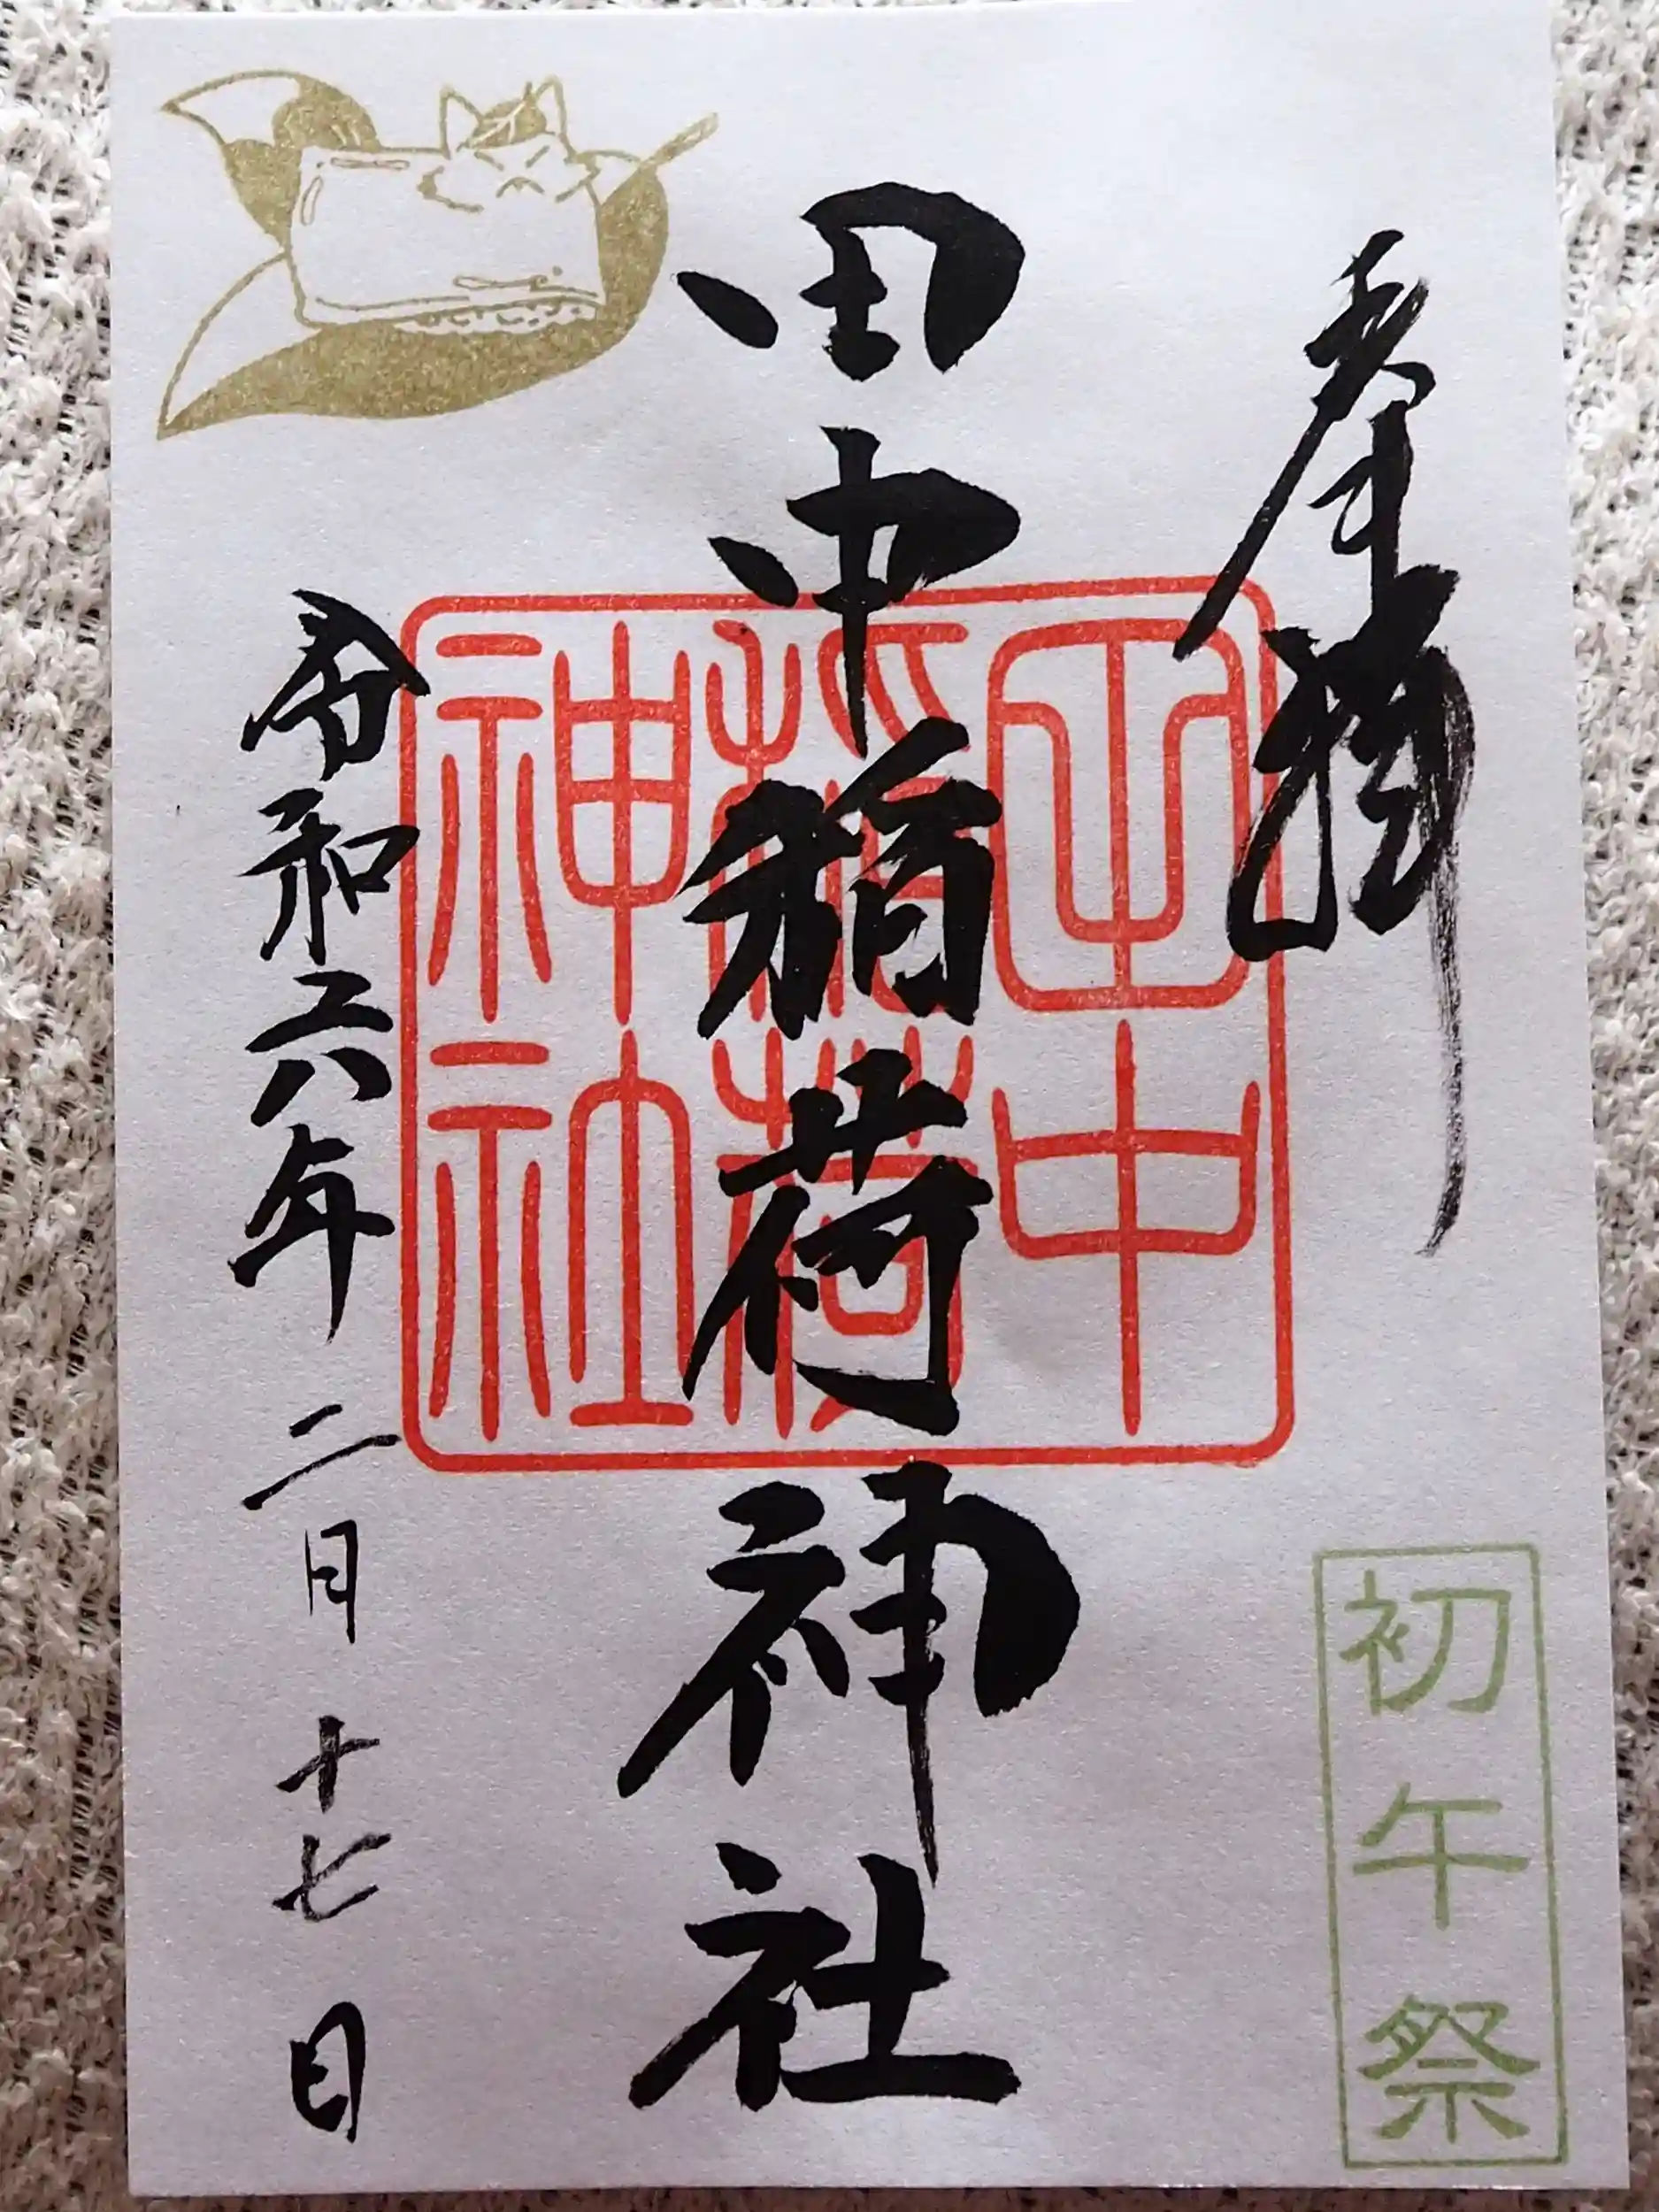 奉拝
初午祭
田中稲荷神社
田中
稲荷
神社
令和六年二月十七日